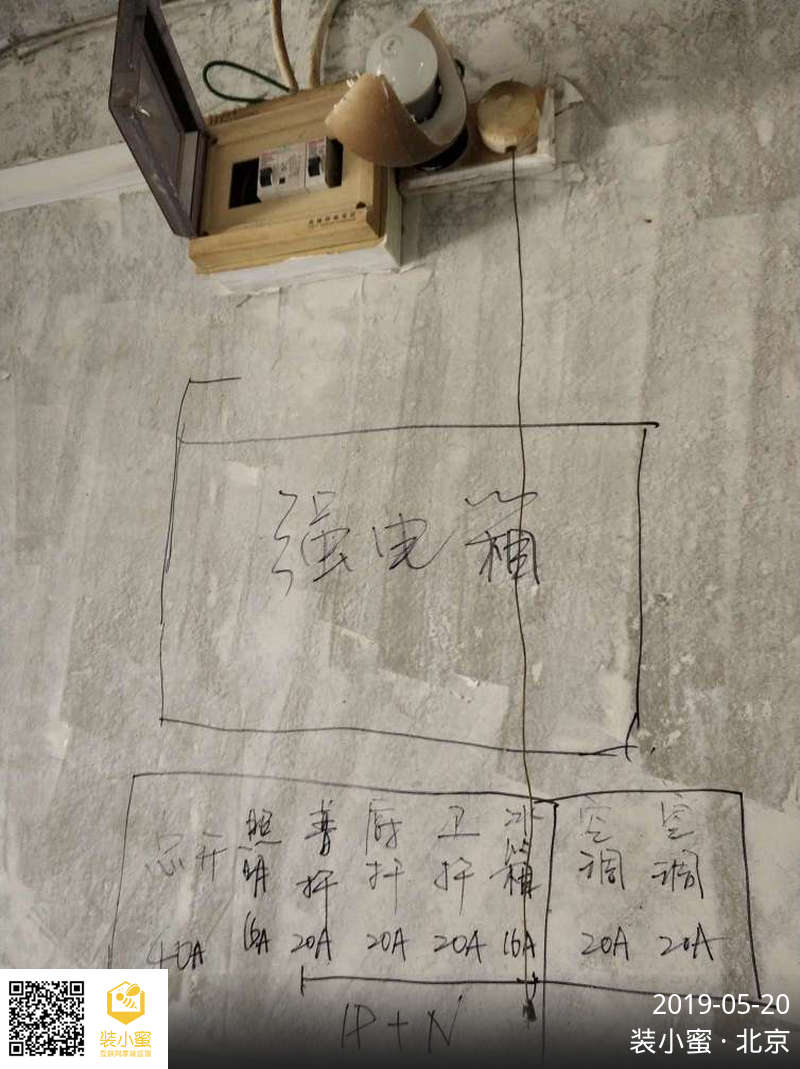 强电箱
总开 照明 普插 厨插 卫插 冰箱 空调 空调
40A 16A 20A 20A 20A 16A 20A 20A
1P+N
2019-05-20
装小蜜
装小蜜·北京